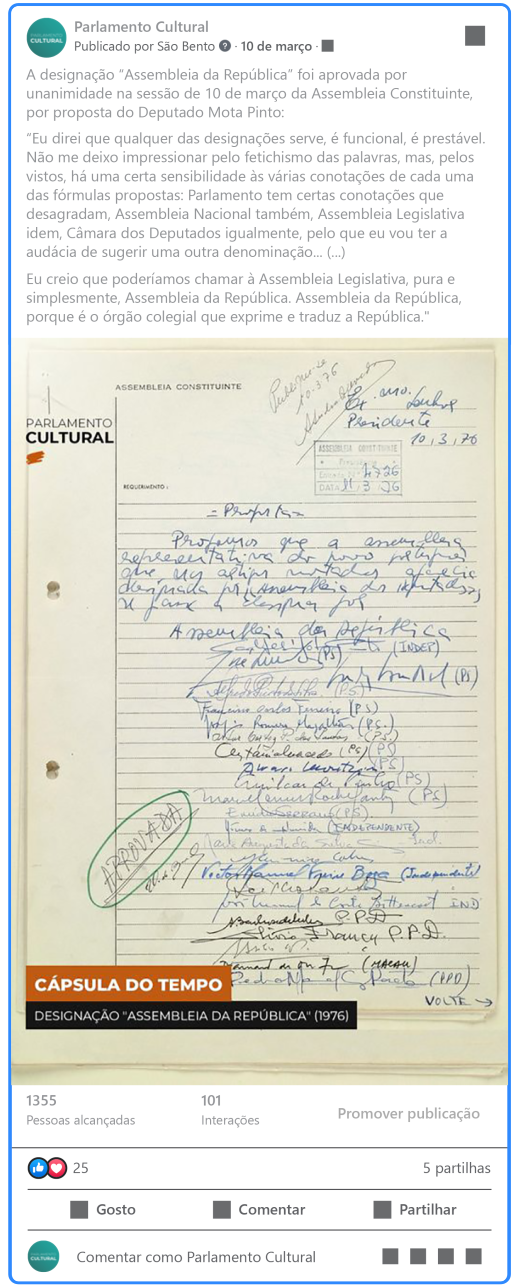 Parlamento Cultural
Publicado por São Bento ? · 10 de março ·
PARLAMENTO
CULTURAL
A designação "Assembleia da República" foi aprovada por
unanimidade na sessão de 10 de março da Assembleia Constituinte,
por proposta do Deputado Mota Pinto:
"Eu direi que qualquer das designações serve, é funcional, é prestável.
Não me deixo impressionar pelo fetichismo das palavras, mas, pelos
vistos, há uma certa sensibilidade às várias conotações de cada uma
das fórmulas propostas: Parlamento tem certas conotações que
desagradam, Assembleia Nacional também, Assembleia Legislativa
idem, Câmara dos Deputados igualmente, pelo que eu vou ter a
audácia de sugerir uma outra denominação... (...)
Eu creio que poderíamos chamar à Assembleia Legislativa, pura e
simplesmente, Assembleia da República. Assembleia da República,
porque é o órgão colegial que exprime e traduz a República."
ASSEMBLEIA CONSTITUINTE
10.3.76
Presidente
10, 3, 76
PARLAMENTO
CULTURAL
ASSEMBLEIA CONSTITUINTE
DATA 11 3 76
REQUERIMENTO:
= Proposta =
Propomos que a assembleia
representativa do povo português
que nos artigos votados aparecia
designada por, Assembleia dos deputados,
se passe a designar por
Assembleia da República
(INDEP)
(PS)
(PS)
(PS)
Francisco Carlos Ferreira (PS)
(PS.)
(PS.)
(PS)
(PS)
(PS)
(PS)
(PS).
(INDEPENDENTE)
Ind.
APROVADA
(Independente)
IND
P.P.D.
França P.P.D.
(MACAU)
(PPD)
VOLTE →
CÁPSULA DO TEMPO
DESIGNAÇÃO "ASSEMBLEIA DA REPÚBLICA" (1976)
1355
Pessoas alcançadas
101
Interações
Promover publicação
25
5 partilhas
Gosto
Comentar
Partilhar
PARLAMENTO
CULTURAL
Comentar como Parlamento Cultural